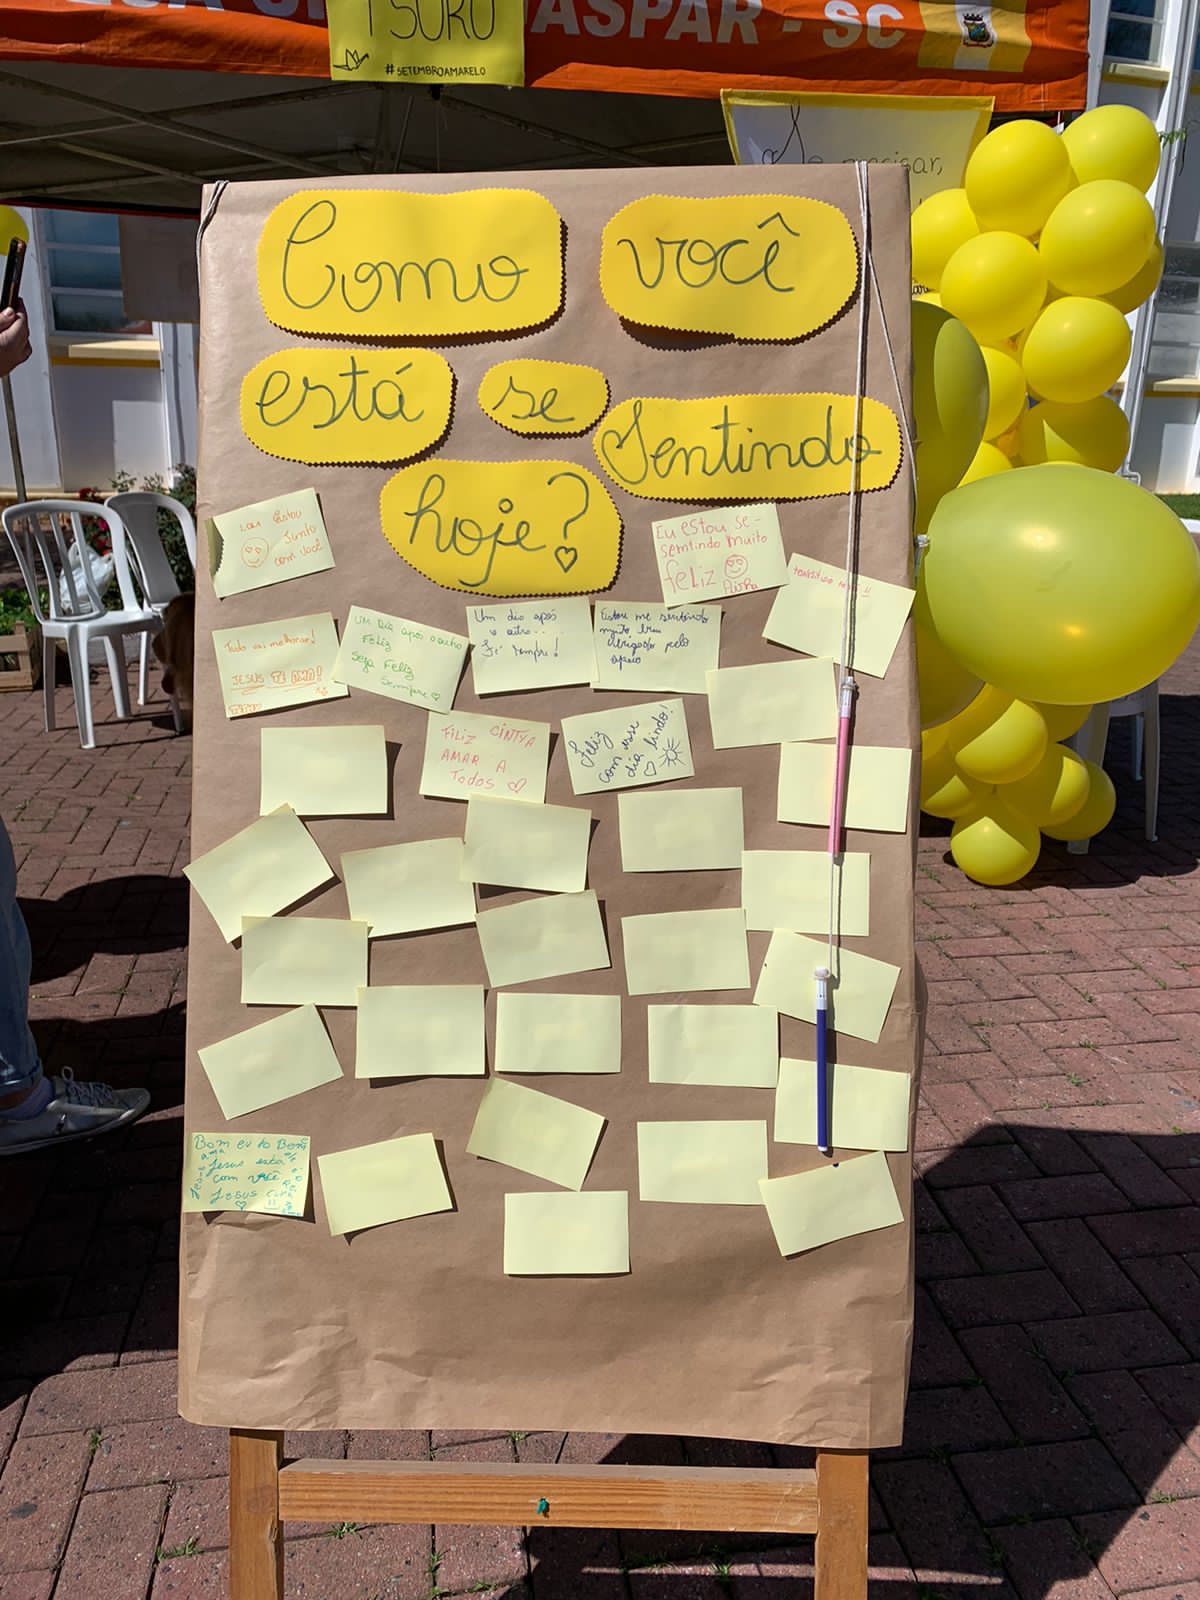 TSURU
#SETEMBROAMARELO
GASPAR - SC
precisar,
Como
você
está
se
Sentindo
hoje?
Estou
Junto
com você
Eu estou se-
sentindo muito
feliz
Tudo vai melhorar!
JESUS TE AMA!
UM Dia após o outro
Feliz
Seja Feliz
Sempre
Um dia após
o outro...
Fé sempre!
Estou me sentindo
muito bem
obrigado pelo
espaço
FILIZ CINTYA
AMAR A
TODOS
Feliz
com esse
dia lindo!
Bom eu to Bem
Jesus está
com você
Jesus